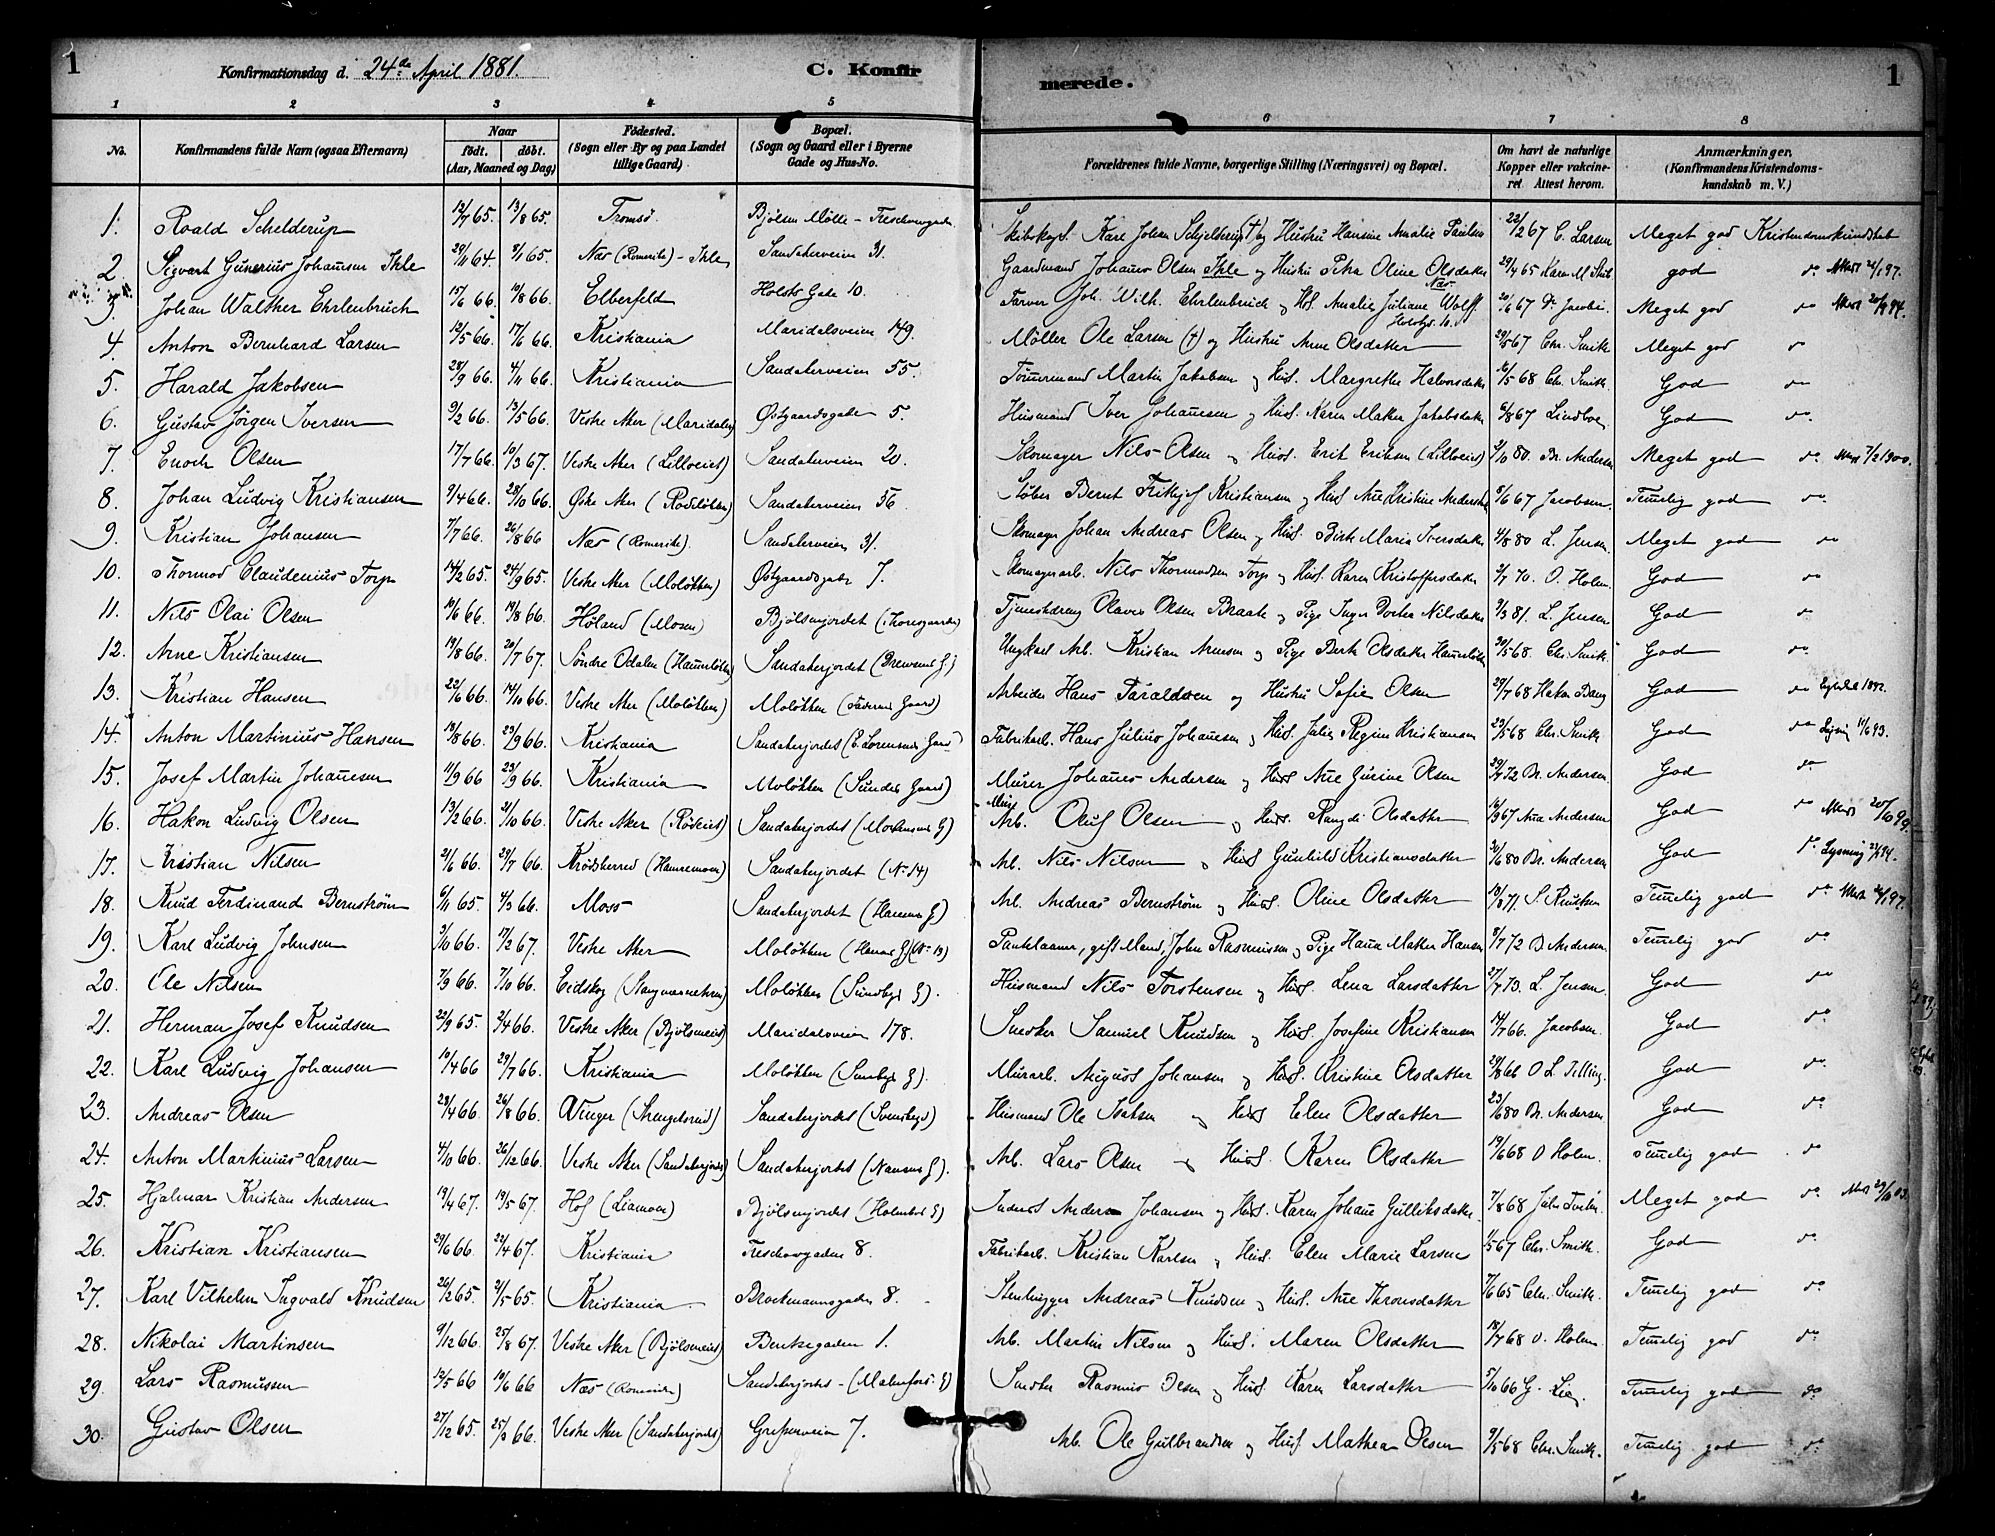 1 Konfirmationsdag d. 24de April 1881. C. Konfirmerede. 1
1 2 3 4 5 6 7 8
No. Konfirmandens fulde Navn (ogsaa Efternavn) Naar født. døbt. (Aar, Maaned og Dag) Fødested. (Sogn eller By og paa Landet tillige Gaard) Bopæl. (Sogn og Gaard eller i Byerne Gade og Hus-No. Forældrenes fulde Navne, borgerlige Stilling (Næringsvei) og Bopæl. Om havt de naturlige Kopper eller vakcineret. Attest herom. Anmærkninger. (Konfirmandens Kristendomskundskab m. V.)
1. Roald Schelderup 12/7 65. 13/8 65. Tromsø Bjølsen Mølle - Treschowgaden Skibskapt. Karl Johan Schjelderup (†) og Hustru Hansine Amalie Paulsen 22/2 67 C. Larsen Meget god Kristendomskundskab
2. Sigvart Gunerius Johannsen Ihle 29/11 64. 8/1 65. Næs (Romerike) - Ihle Sandakerveien 31. Gaardmand Johannes Olsen Ihle og Hustru Petra Oline Olsdatter Næs 29/7 65 Karen M. god do
3. Johan Walther Ehrlenbruch 15/6 66. 19/8 66. Elberfeld Holsts Gade 10. Farver Joh. Wilh. Ehrlenbruch og Hus. Amalie Juliane Wolff. Holstsg. 10. 20/6 67 Dr Jacobi. Meget god do
4. Anton Bernhard Larsen 12/5 66. 17/6 66. Kristiania Maridalsveien 149. Møller Ole Larsen (†) og Hustru Anne Olsdatter 29/5 67 Chr. Smith Meget god do
5. Harald Jakobsen 28/9 66. 4/11 66. Kristiania Sandakerveien 55. Tømmermand Martin Jakobsen og Hus. Margrethe Halvorsdatter 16/5 68 Chr. Smith God do
6. Gustav Jørgen Iversen 9/2 66. 13/5 66. Vestre Aker (Maridalen) Østgaardsgade 5 Husmand Iver Johannesen og Hus. Karen Mathea Jakobsdatter 6/8 67 Lindboe God do.
7. Enoch Olsen 17/7 66. 10/3 67. Vestre Aker (Lilloeiet) Sandakerveien 20. Skomager Nils Olsen og Hus. Erik Eriksen (Lilloeiet) 2/10 80. Br. Andersen Meget god do. 7/2 1900.
8. Johan Ludvig Kristiansen 9/4 66. 28/10 66. Østre Aker (Rodeløkken) Sandakerveien 56 Støber Bernt Fritjof Kristiansen og Hus. Ane Kristine Andersdatter 8/6 67 Jacobsen. Temelig god do
9. Kristian Johansen 7/7 66. 26/8 66 Næs (Romerike). Sandakerveien 31. Skomager Johan Andreas Olsen og Hus. Birthe Maria Iversdatter 4/8 80 L. Jensen. Meget god do
10. Thormod Claudenius Torp 14/2 65. 24/9 65. Vestre Aker (Moløkken) Østgaardsgade 7. Skomagerarb. Nils Thormodsen Torp og Hus. Karen Kristoffersdatter 3/7 70. O. Holm. God do
11. Nils Olai Olsen 10/6 66. 19/8 66. Høland (Mosen) Bjølsenjordet (Thoresgaarden) Tjenestedreng Olaves Olsen Braate og Pige Inger Dorthea Nilsdatter 9/3 81. L. Jensen God do
12. Arne Kristiansen 19/8 66. 20/7 67. Søndre Odalen Sandakerjordet Ungkarl Arb. Kristian Arnesen og Pige Berthe Olsdatter 30/5 68. Chr. Smith. God do
13. Kristian Hansen 22/6 66. 14/10 66. Vestre Aker (Moløkken) Moløkken Arbeider Hans Taraldsen og Hustru Sofie Olsen 29/7 68 Hakon Bang God do 1892.
14. Anton Martinius Hansen 18/8 66. 23/9 66. Kristiania Sandakerjordet (E. Lorensens Gaard) Fabrikarb. Hans Julius Johannesen og Hus. Julie Regine Kristiansen 23/5 68 Chr. Smith God do Lysning 11/6 93.
15. Josef Martin Johannesen 11/9 66 23/9 66. Kristiania Moløkken (Sundes Gaard) Murer Johannes Andersen og Hus. Ane Gurine Olsen 29/7 72 Br. Andersen. God do
16. Hakon Ludvig Olsen 13/2 66. 21/10 66. Vestre Aker Sandakerjordet Arb. Oluf Olsen og Hus. Rangdi Olsdatter 16/9 67 Ane Andersen God do
17. Kristian Nilsen 21/6 66. 29/7 66. Krødsherred (Hamremoen) Sandakerjordet (No 14) Arb. Nils Nilsen og Hus. Gunhild Kristiansdatter 30/6 80 Br. Andersen God do Lysning
18. Knud Ferdinand Bernstrøm 6/11 65. 4/3 66. Moss Sandakerjordet (Hansens G) Arb. Andreas Bernstrøm og Hus. Oline Olsdatter 13/8 71. S. Knutsen Temelig god do
19. Karl Ludvig Johnsen 3/10 66. 17/2 67. Vestre Aker Moløkken (Hansens G) (No 13) Pantelaaner, gift Mand, John Rasmussen og Pige Hana Mathea Hansen 8/7 72 B. Andersen. Temelig god do
20. Ole Nilsen 7/9 66. 7/10 66. Eidskog Moløkken (Sundbys G). Husmand Nils Torstensen og Hus. Lena Larsdatter 27/7 73. L. Jensen. God do
21. Herman Josef Knudsen 22/9 65. 2/4 66. Vestre Aker (Bjølseneiet) Maridalsveien 178. Snedker Samuel Knudsen og Hus. Josefine Kristiansen 14/7 66. Jacobsen. God do
22. Karl Ludvig Johansen 10/4 66 29/7 66. Kristiania Moløkken (Sundbys G). Murarb. August Johansen og Hus. Kristine Olsdatter 28/8 66 O L Tilling. God do
23. Andreas Olsen 28/4 66. 26/8 66. Vinger (Strengelsrud) Sandakerjordet (Svensbys) Husmand Ole Isaksen og Hus. Elen Olsdatter 23/6 80 Br. Andersen God do
24. Anton Martinius Larsen 4/10 66. 26/12 66. Vestre Aker (Sandakerjordet) Sandakerjordet (Nansens G). Arb. Lars Olsen og Hus. Karen Olsdatter 19/6 68 O Holm. Temelig god do
25. Hjalmar Kristian Andersen 19/4 67. 19/5 67. Hof (Liamoen) Bjølsenjordet (Holmbos G) Inderst Anders Johansen og Hus. Karen Johane Gulliksdatter 7/8 68 Meget god do
26. Kristian Kristiansen 29/6 66. 22/4 67. Kristiania Treschowgaden 8. Fabrikarb. Kristian Karlsen og Hus. Elen Marie Larsen 1/5 67 Chr. Smith. God do
27. Karl Vilhelm Ingvald Knudsen 26/2 65. 21/5 65. Kristiania. Brockmannsgaden 8. Stenhugger Andreas Knudsen og Hus. Ane Thronsdatter 7/6 65 Chr. Smith. Temelig god do
28. Nikolai Martinsen 9/12 66. 25/8 67. Vestre Aker (Bjølseneiet) Bentsegaden 1. Arb. Martin Nilsen og Hus. Maren Olsdatter 18/7 68 O. Holm Temelig god do
29. Lars Rasmussen 12/5 66 10/6 66 Næs (Romerike) Sandakerjordet - (Malmfors. G) Snedker Rasmus Olsen og Hus. Karen Larsdatter 5/10 66 G. Lie. Temelig god do
30. Gustav Olsen 27/12 65. 25/3 66. Vestre Aker (Sandakerjordet) Grefsenveien 7. Arb. Ole Gulbrandsen og Hus. Mathea Olsen 9/5 68 Chr. Smith. Temelig god do